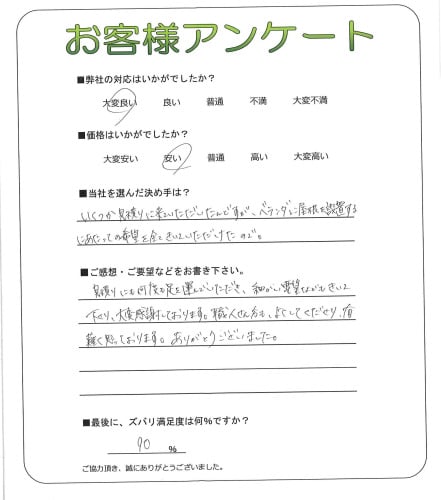 お客様アンケート
■弊社の対応はいかがでしたか?
大変良い 良い 普通 不満 大変不満
■価格はいかがでしたか?
大変安い 安い 普通 高い 大変高い
■当社を選んだ決め手は?
いくつか見積りに来ていただいたんですが、ベランダに屋根を設置する
にあたっての希望を全てきいていただけたので。
■ご感想・ご要望などをお書き下さい。
見積りにも何度も足を運んでいただき、細かい要望などもきいて
下さり、大変感謝しております。職人さん方も、よくしてくださり、有
難く思っております。ありがとうございました。
■最後に、ズバリ満足度は何%ですか?
90 %
ご協力頂き、誠にありがとうございました。